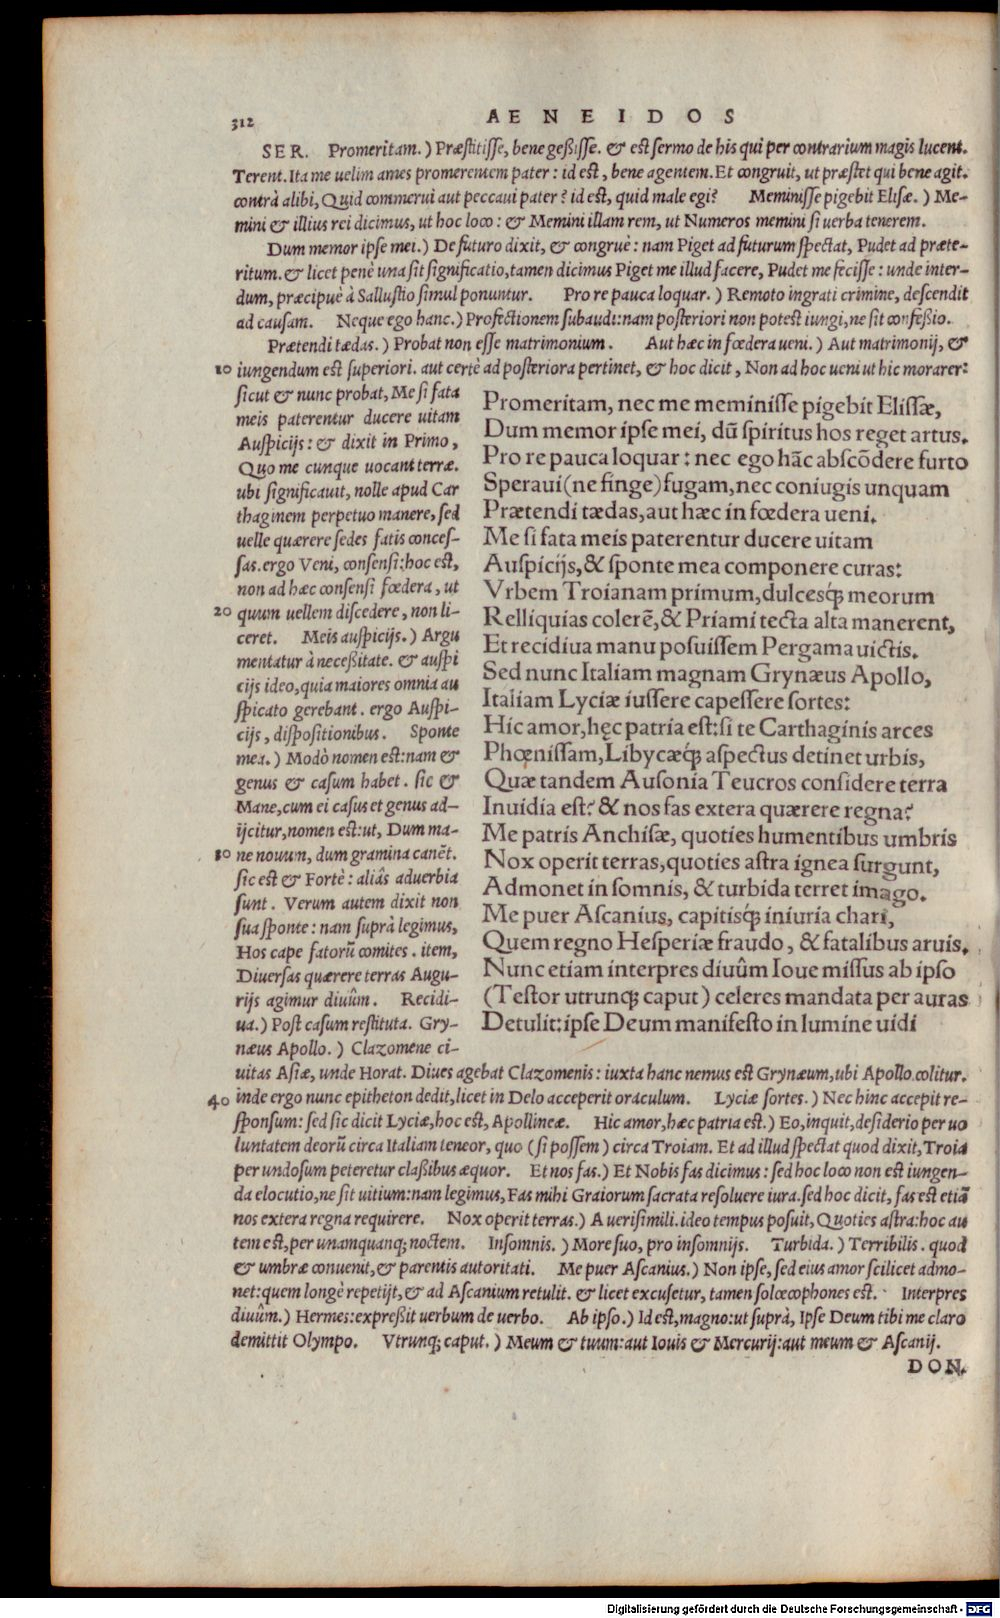 312 AENEIDOS
SER. Promeritam.) Præstitisse, bene geßisse. & est sermo de his qui per contrarium magis lucent.
Terent. Ita me uelim ames promerentem pater: id est, bene agentem. Et congruit, ut præstet qui bene agit.
contrà alibi, Quid commerui aut peccaui pater? id est, quid male egi? Meminisse pigebit Elisæ.) Me-
mini & illius rei dicimus, ut hoc loco: & Memini illam rem, ut Numeros memini si uerba tenerem.
Dum memor ipse mei.) De futuro dixit, & congruè: nam Piget ad futurum spectat, Pudet ad præte-
ritum. & licet penè una sit significatio, tamen dicimus Piget me illud facere, Pudet me fecisse: unde inter-
dum, præcipuè à Sallustio simul ponuntur. Pro re pauca loquar.) Remoto ingrati crimine, descendit
ad causam. Neque ego hanc.) Profectionem subaudi: nam posteriori non potest iungi, ne sit confeßio.
Prætendi tædas.) Probat non esse matrimonium. Aut hæc in fœdera ueni.) Aut matrimonij, &
10 iungendum est superiori. aut certè ad posteriora pertinet, & hoc dicit, Non ad hoc ueni ut hic morarer:
sicut & nunc probat, Me si fata
meis paterentur ducere uitam
Auspicijs: & dixit in Primo,
Quo me cunque uocant terræ.
ubi significauit, nolle apud Car
thaginem perpetuo manere, sed
uelle quærere sedes fatis conces-
sas. ergo Veni, consensi: hoc est,
non ad hæc consensi fœdera, ut
20 quum uellem discedere, non li-
ceret. Meis auspicijs.) Argu
mentatur à neceßitate. & auspi
cijs ideo, quia maiores omnia au
spicato gerebant. ergo Auspi-
cijs, dispositionibus. Sponte
mea.) Modò nomen est: nam &
genus & casum habet. sic &
Mane, cum ei casus et genus ad-
ijcitur, nomen est: ut, Dum ma-
30 ne nouum, dum gramina canẽt.
sic est & Fortè: aliâs aduerbia
sunt. Verum autem dixit non
sua sponte: nam suprà legimus,
Hos cape fatorũ comites. item,
Diuersas quærere terras Augu-
rijs agimur diuûm. Recidi-
ua.) Post casum restituta. Gry-
næus Apollo.) Clazomene ci-
Promeritam, nec me meminisse pigebit Elissæ,
Dum memor ipse mei, dũ spiritus hos reget artus.
Pro re pauca loquar: nec ego hãc abscõdere furto
Speraui (ne finge) fugam, nec coniugis unquam
Prætendi tædas, aut hæc in fœdera ueni.
Me si fata meis paterentur ducere uitam
Auspicijs, & sponte mea componere curas:
Vrbem Troianam primum, dulcesq́; meorum
Relliquias colerẽ, & Priami tecta alta manerent,
Et recidiua manu posuissem Pergama uictis.
Sed nunc Italiam magnam Grynæus Apollo,
Italiam Lyciæ iussere capessere sortes:
Hic amor, hęc patria est: si te Carthaginis arces
Phœnissam, Libycæq́; aspectus detinet urbis,
Quæ tandem Ausonia Teucros considere terra
Inuidia est? & nos fas extera quærere regna?
Me patris Anchisæ, quoties humentibus umbris
Nox operit terras, quoties astra ignea surgunt,
Admonet in somnis, & turbida terret imago.
Me puer Ascanius, capitisq́; iniuria chari,
Quem regno Hesperiæ fraudo, & fatalibus aruis.
Nunc etiam interpres diuûm Ioue missus ab ipso
(Testor utrunq; caput) celeres mandata per auras
Detulit: ipse Deum manifesto in lumine uidi
uitas Asiæ, unde Horat. Diues agebat Clazomenis: iuxta hanc nemus est Grynæum, ubi Apollo colitur.
40 inde ergo nunc epitheton dedit, licet in Delo acceperit oraculum. Lyciæ sortes.) Nec hinc accepit re-
sponsum: sed sic dicit Lyciæ, hoc est, Apollineæ. Hic amor, hæc patria est.) Eo, inquit, desiderio per uo
luntatem deorũ circa Italiam teneor, quo (si possem) circa Troiam. Et ad illud spectat quod dixit, Troia
per undosum peteretur claßibus æquor. Et nos fas.) Et Nobis fas dicimus: sed hoc loco non est iungen-
da elocutio, ne sit uitium: nam legimus, Fas mihi Graiorum sacrata resoluere iura. sed hoc dicit, fas est etiã
nos extera regna requirere. Nox operit terras.) A uerisimili. ideo tempus posuit, Quoties astra: hoc au
tem est, per unamquanq; noctem. Insomnis.) More suo, pro insomnijs. Turbida.) Terribilis. quod
& umbræ conuenit, & parentis autoritati. Me puer Ascanius.) Non ipse, sed eius amor scilicet admo-
net: quem longè repetijt, & ad Ascanium retulit. & licet excusetur, tamen solœcophones est. Interpres
diuûm.) Hermes: expreßit uerbum de uerbo. Ab ipso.) Id est, magno: ut suprà, Ipse Deum tibi me claro
demittit Olympo. Vtrunq; caput.) Meum & tuum: aut Iouis & Mercurij: aut meum & Ascanij.
DON.
Digitalisierung gefördert durch die Deutsche Forschungsgemeinschaft - DFG